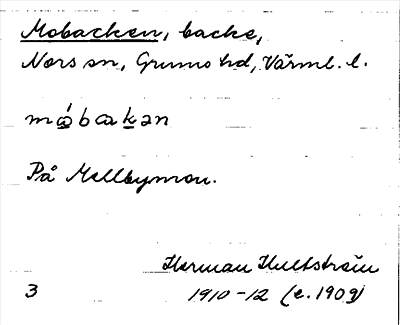 Mobacken, backe,
Nors sn, Grums hd, Värml. l.
mǿbakən
På Mellbymon.
Herman Hultström
3 1910-12 (c. 1909)